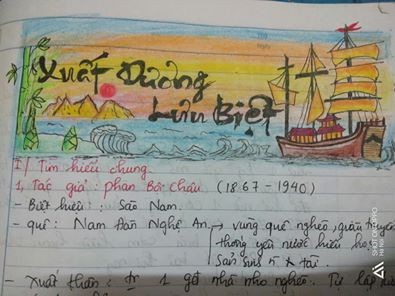 Xuất Dương
Lưu Biệt
I/ Tìm hiểu chung
1, Tác giả: phan Bội Châu (1867 - 1940)
- Biệt hiệu: Sào Nam
- quê: Nam Đàn Nghệ An → vùng quê nghèo, giàu truyền
thống yêu nước hiếu học
Sản sinh n tài.
- Xuất thân: tr 1 gđ nhà nho nghèo. Từ lập
SHOT ON OPPO